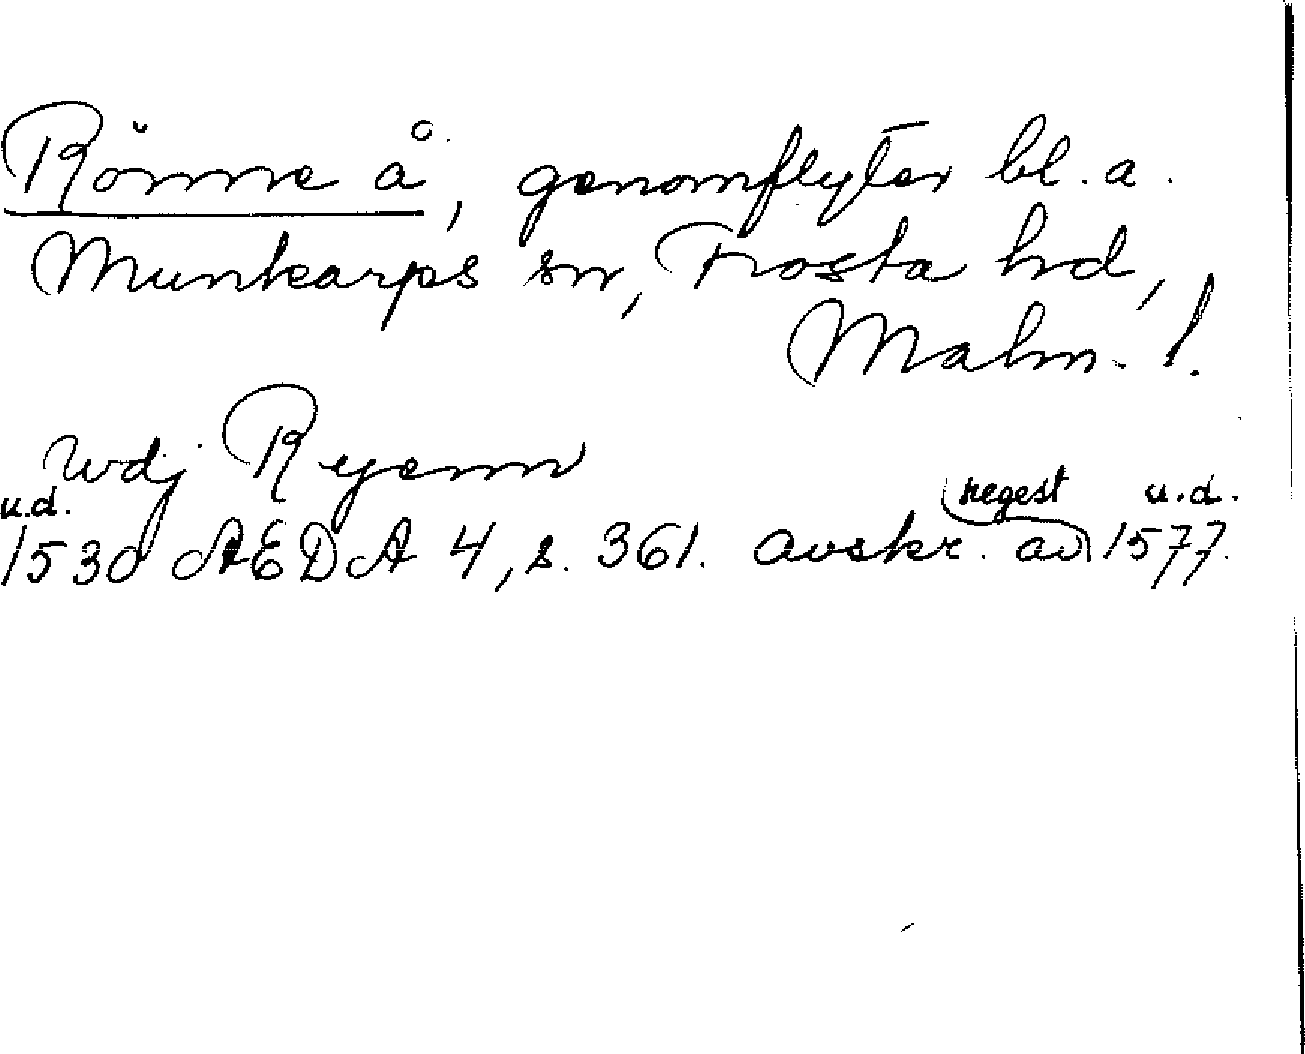 Rönne å, genomflyter bl. a.
Munkarps sn, Frosta hd,
Malm. l.
wdj Ryenn
u.d. regest u.d.
1530 AEDA 4, s. 361. avskr. av 1577.